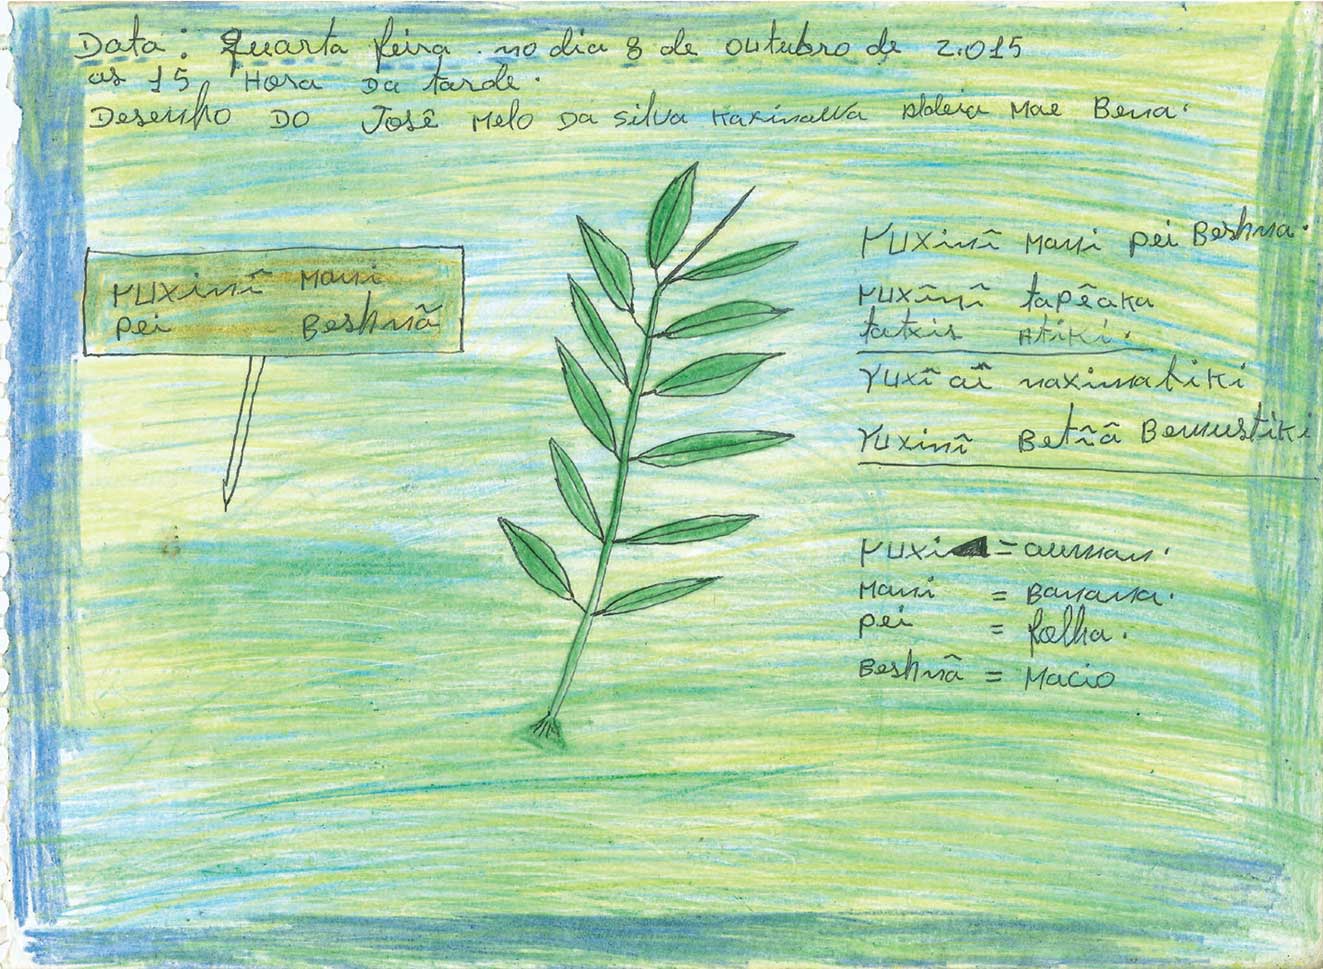 Data: Quarta feira no dia 8 de outubro de 2.015
as 15 Hora Da tarde.
Desenho DO José Melo Da Silva Kaxinawa Aldeia Mae Bena.
YUXINÎ MANI
pei BESHNÃ
YUXINÎ MANI pei Beshna.
YUXÎNÎ tapêaka
tatxis Atiki.
YUXÎ aî naximatiki
YUXINÎ Betîâ Bemustiki
YUXI =
Mani = Banana.
pei = folha.
Beshnâ = Macio